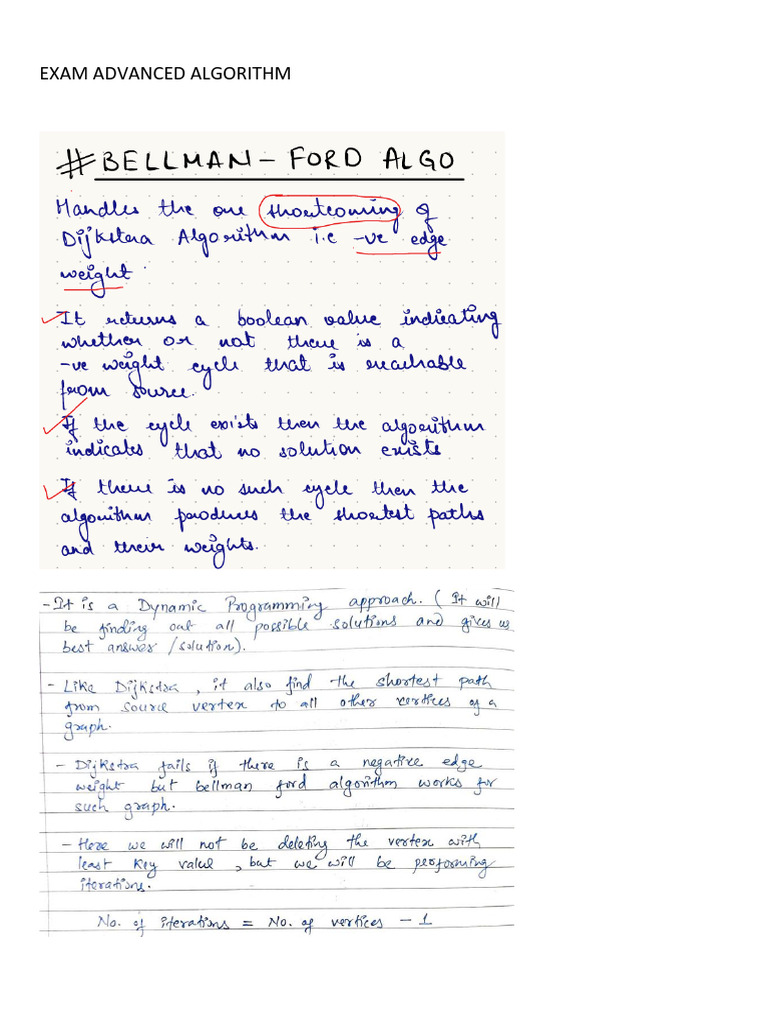 EXAM ADVANCED ALGORITHM
# BELLMAN - FORD ALGO
Handles the one shortcoming of
Dijkstra Algorithm i.e -ve edge
weight.
It returns a boolean value indicating
whether or not there is a
-ve weight cycle that is reachable
from source.
If the cycle exists then the algorithm
indicates that no solution exists
If there is no such cycle then the
algorithm produces the shortest paths
and their weights.
- It is a Dynamic Programming approach. (It will
be finding out all possible solutions and gives us
best answer /solution).
- Like Dijkstra, it also find the shortest path
from source vertex to all other vertices of a
graph.
- Dijkstra fails if there is a negative edge
weight but bellman ford algorithm works for
such graph.
- Here we will not be deleting the vertex with
least key value, but we will be performing
iterations.
No. of iterations = No. of vertices - 1